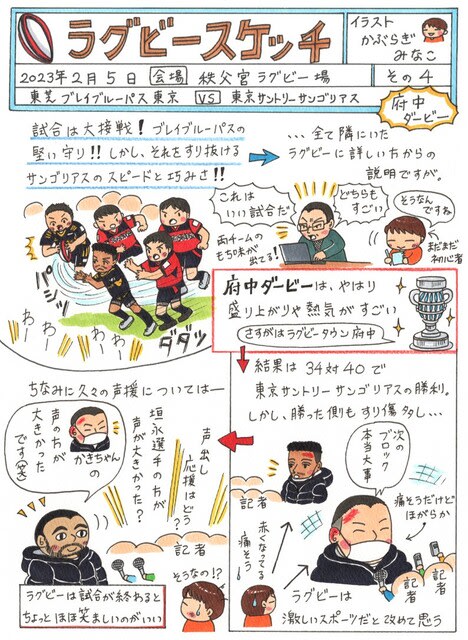 ラグビースケッチ
イラスト
かぶらぎ
みなこ
2023年2月5日
会場
秩父宮ラグビー場
その4
東芝ブレイブルーパス東京
VS
東京サントリーサンゴリアス
府中
ダービー
試合は大接戦！ブレイブルーパスの
堅い守り!!しかし、それをすり抜ける
サンゴリアスのスピードと巧みさ!!
…全て隣にいた
ラグビーに詳しい方からの
説明ですが。
これは
いい試合だ
どちらも
すごい
両チームの
もち味が
出てる!
そうなん
ですね
まだまだ
初心者
パシッ
わー
わー
わー
ダダッ
府中ダービーは、やはり
盛り上がりや熱気がすごい
さすがはラグビータウン府中
結果は34対40で
東京サントリーサンゴリアスの勝利。
しかし、勝った側もすり傷多し…
次の
ブロック
本当大事
痛そうだけど
ほがらか
記者
赤くなってる
痛そう
記者
記者
ラグビーは
激しいスポーツだと改めて思う
ちなみに久々の声援については―
声出し
応援はどう?
垣永選手の方が
声が大きかった?
かきちゃん
の
声の方が
大きかった
です(笑)
記者
記者
そうなの!?
ラグビーは試合が終わると
ちょっとほほ笑ましいのがいい